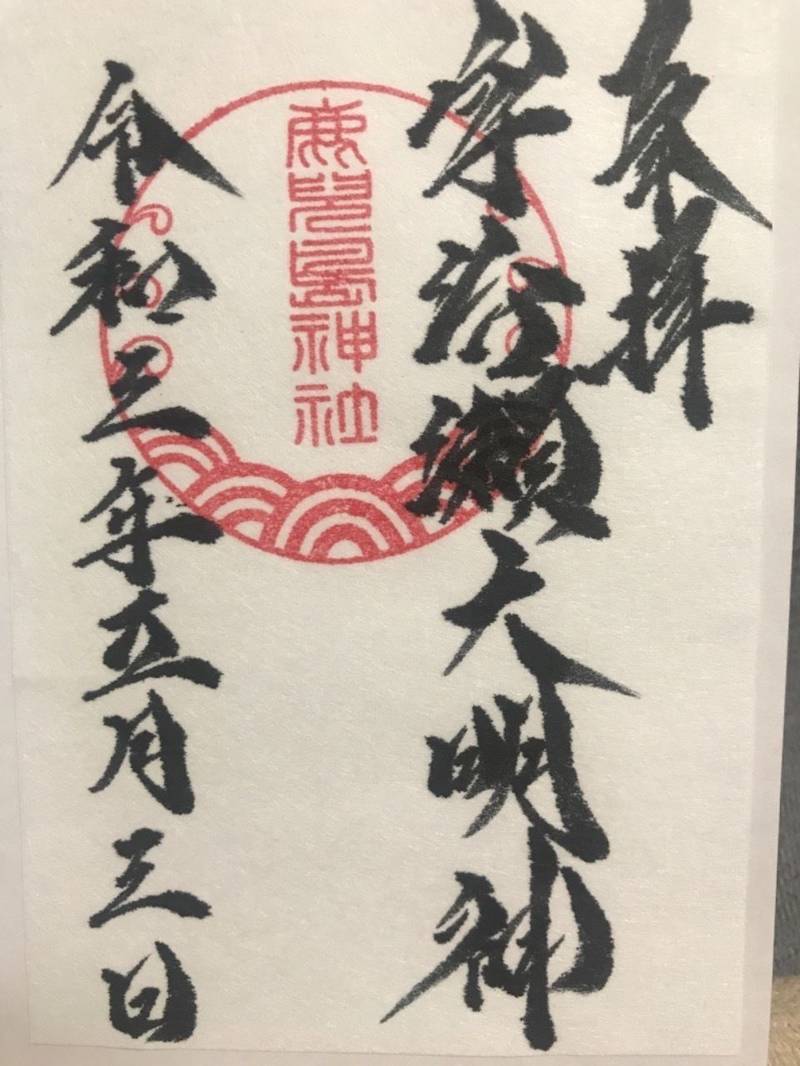 奉拝
宇治瀬大明神
鹿児島神社
令和三年五月三日